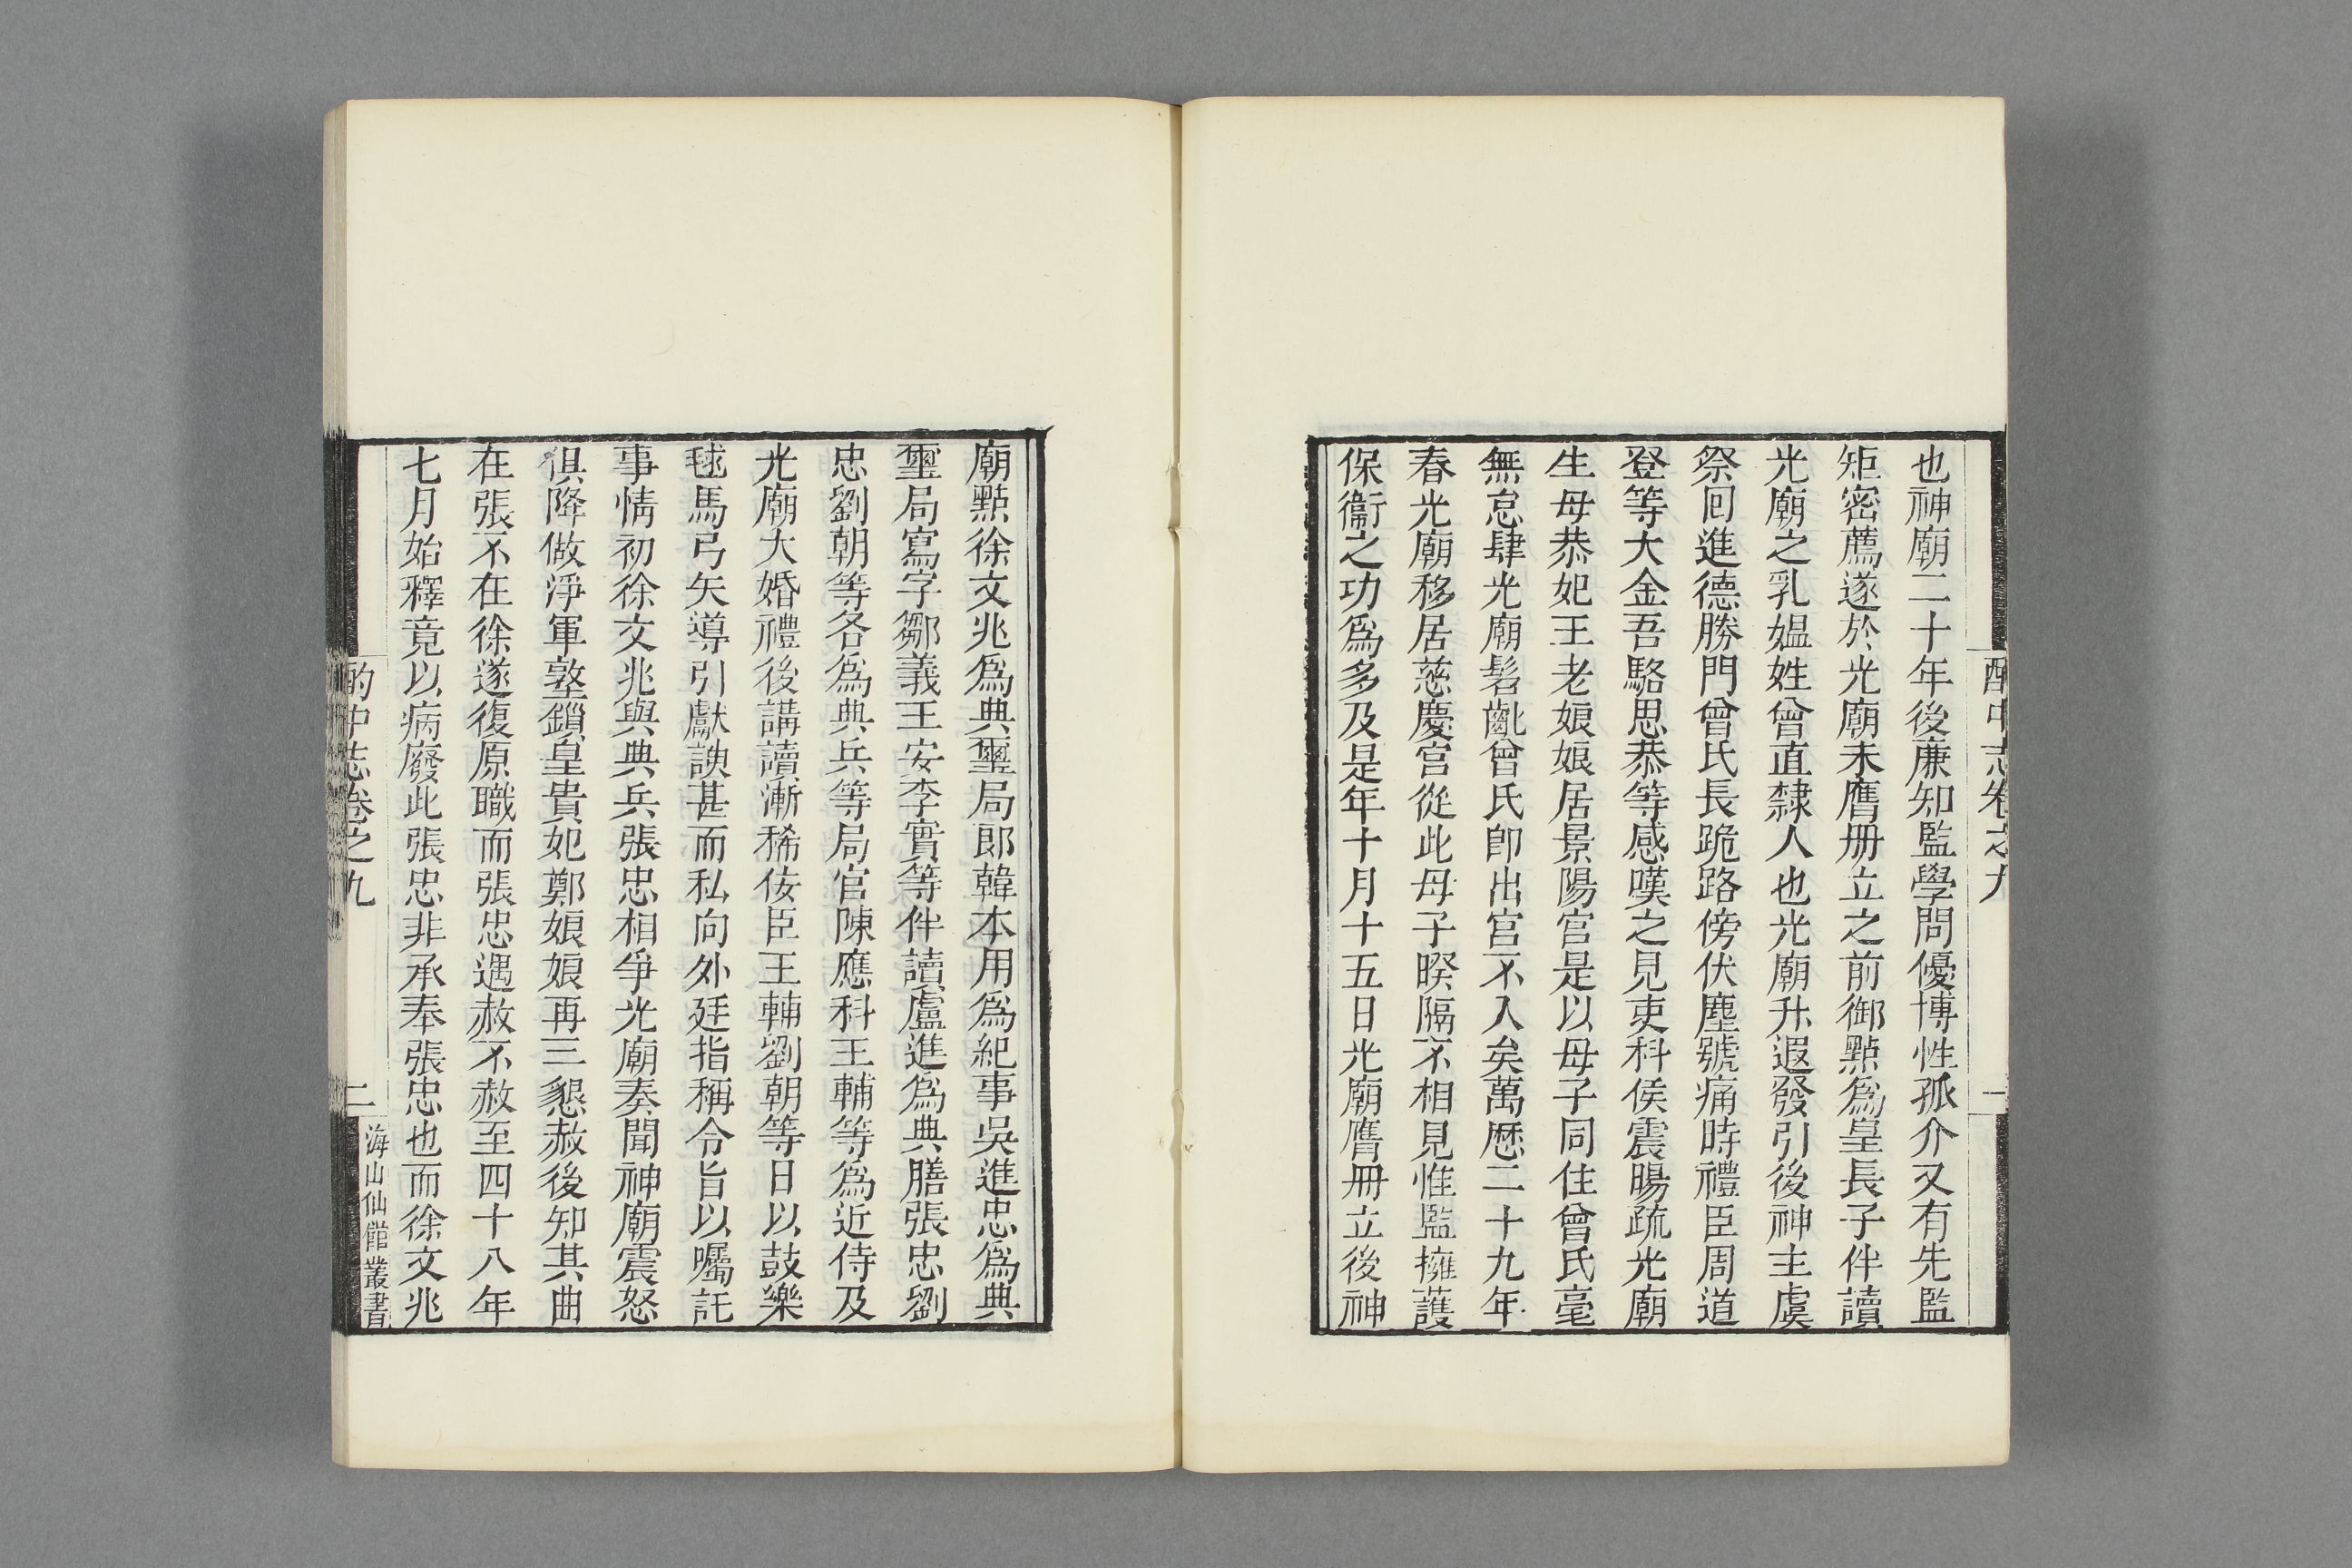 酌中志卷之九
一
也神廟二十年後廉知監學問優博性孤介又有先監
矩密薦遂於光廟未膺册立之前御㸃爲皇長子伴讀
光廟之乳媪姓曾直隸人也光廟升遐發引後神主虞
祭回進德勝門曾氏長跪路傍伏塵號痛時禮臣周道
登等大金吾駱思恭等感嘆之見吏科侯震暘疏光廟
生母恭妃王老娘娘居景陽宮是以母子同住曾氏毫
無怠肆光廟髫齓曾氏卽出宮不入矣萬歷二十九年
春光廟移居慈慶宮從此母子暌隔不相見惟監擁護
保衞之功爲多及是年十月十五日光廟膺冊立後神
廟㸃徐文兆爲典璽局郎韓本用爲紀事吳進忠爲典
璽局寫字鄒義王安李實等伴讀盧進爲典膳張忠劉
忠劉朝等各爲典兵等局官陳應科王輔等爲近侍及
光廟大婚禮後講讀漸稀侫臣王輔劉朝等日以鼓樂
毬馬弓矢導引獻諛甚而私向外廷指稱令旨以囑託
事情初徐文兆與典兵張忠相爭光廟奏聞神廟震怒
俱降做淨軍墪鎖皇貴妃鄭娘娘再三懇赦後知其曲
在張不在徐遂復原職而張忠遇赦不赦至四十八年
七月始釋竟以病廢此張忠非承奉張忠也而徐文兆
酌中志卷之九
二
海山仙館叢書